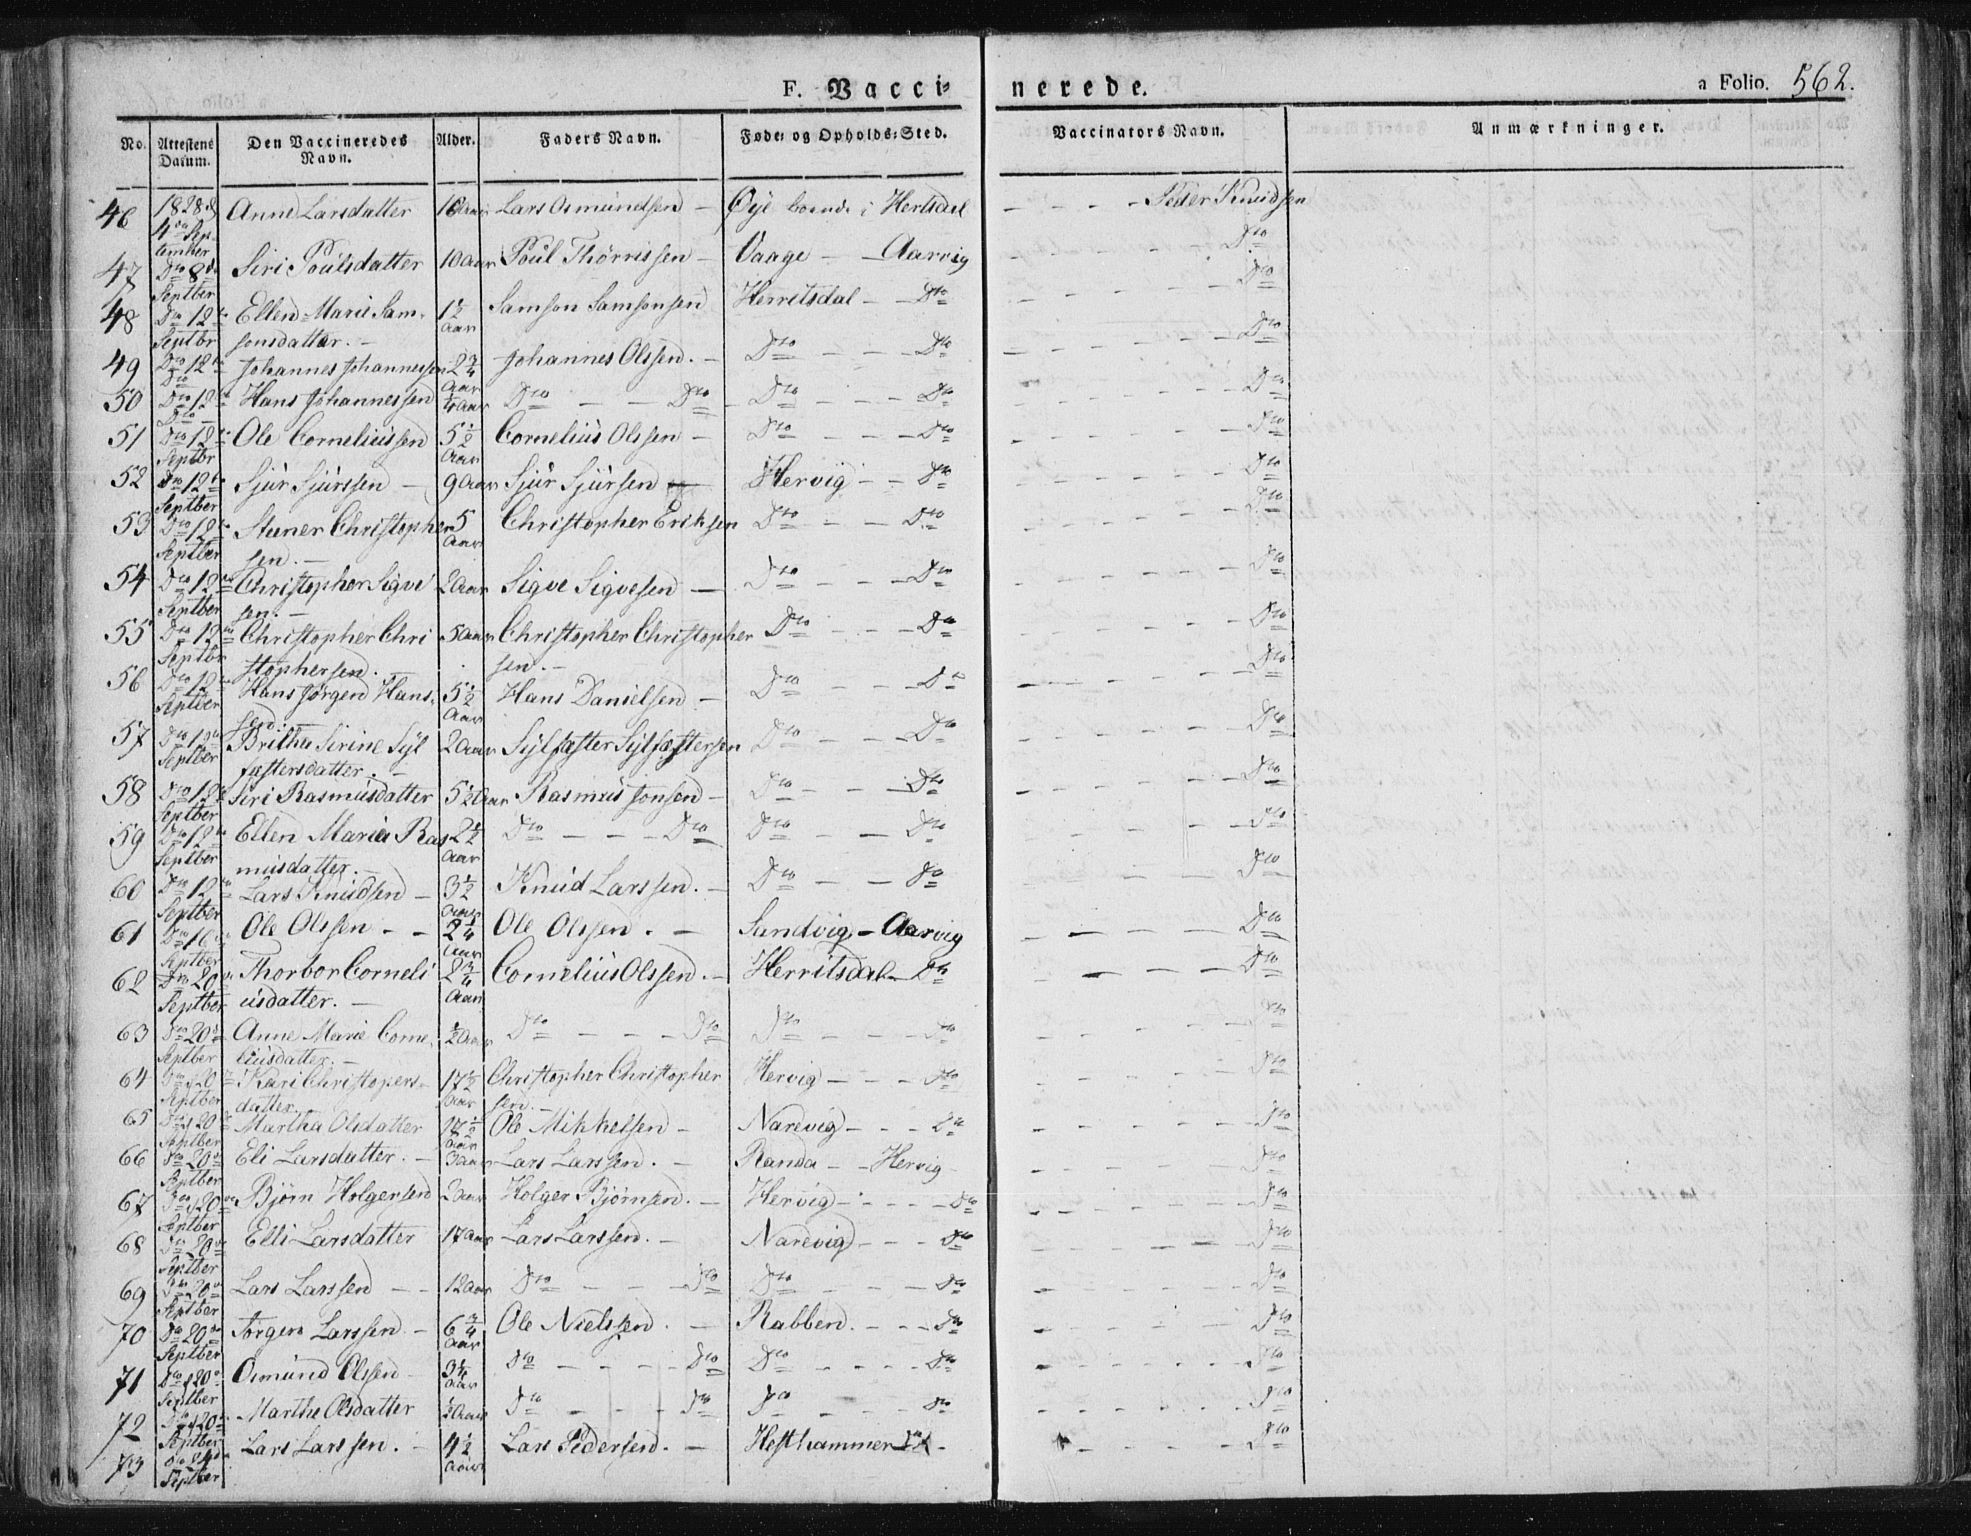 F. Vaccinerede. a Folio. 562.
No. Attestens Datum. Den Vaccineredes Navn. Alder. Faders Navn. Føde- og Opholds-Sted. Vaccinators Navn. Anmærkninger.
46 1828 4de September Anne Larsdatter 16 Aar Lars Osmundsen - Øye boende i Hertsdal - - - - Peder Knudsen
47 Do 8de Septber Siri Poulsdatter 10 Aar Poul Thörrissen - Vaage - - Aarvig - - - Do
48 Do 12te Septbr Ellen Marie Samsonsdatter. - 1½ Aar Samson Samsonsen Herritsdal - - Do - - - Do
49 Do 12te Do Johannes Johannessen 2¾ Aar Johannes Olssen. - Do - - - Do - - - Do
50 Do 12te Do Hans Johannessen ¼ Aar Do - - Do - Do - - - Do - - - Do
51 Do 12te Septbr Ole Corneliussen 5½ Aar Cornelius Olssen - Do - - - Do - - - Do
52 Do 12te Septber Sjur Sjurssen - 9 Aar Sjur Sjursen - Hervig - - Do - - - Do
53 Do 12te Septber Christophersen. - 5 Aar Christopher Eriksen Do - - Do - - - Do
54 Do 12te Septber Christopher Sigvesen. - 2 Aar Sigve Sigvesen - Do - - - Do - - - Do
55 Do 12te Septbr Christopher Christophersen. - 5 Aar Christopher Christophersen. - Do - - - Do - - - Do
56 Do 12te Septber Hans Jørgen Hanssen. - 5½ Aar Hans Danielsen - Do - - - Do - - - Do
57 Do 12te Septber Britha Sirine Sylfæstersdatter. - 2 Aar Sylfæster Sylfæstersen Do - - - Do - - - Do
58 Do 12te Septber Siri Rasmusdatter 5½ Aar Rasmus Jonsen - Do - - - Do - - - Do
59 Do 12te Septber Ellen Maria Rasmusdatter. - 2½ Aar Do - - - Do Do - - Do - - - Do
60 Do 12te Septber Lars Knudsen - 3½ Aar Knud Larssen. - Do - - Do - - - Do
61 Do 16 Septber Ole Olssen - - 2¼ Aar Ole Olssen. - Sandvig - Aarvig - - - - Do
62 Do 20de Septber Thorbor Corneliusdatter. - 2¾ Aar Cornelius Olssen. - Herritsdal - Do - - - - Do
63 Do 20de Septber Anne Marie Corneliusdatter. - ½ Aar Do - - - Do Do - - - Do - - - Do
64 Do 20de Septber Kari Christopersdatter 17½ Aar Christopher Christophersen. - Hervig - - - Do - - - Do
65 Do 20de Septber Martha Olsdatter 17½ Aar Ole Mikkelsen - Narevig - - - Do - - - Do
66 Do 20de Septber Eli Larsdatter. - 3 Aar Lars Larssen. - Randa - - Hervig - - - - Do
67 Do 20de Septber Bjørn Holgersen 2 Aar Holger Bjørnsen. - Hervig - - - - Do - - - Do
68 Do 20de Septber Elli Larsdatter 17 Aar Lars Larssen. - Narevig - - - Do - - - Do
69 Do 20de Septber Lars Larssen - - 12 Aar Do - - - Do Do - - - Do - - - Do
70 Do 20de Septber Larssen. - 6¾ Aar Ole Nielssen. - Rabben. - - - Do - - - Do
71 Do 20de Septber Osmund Olssen - 3¼ Aar Do - - - - Do Do - - - - Do - - - Do
72 Do 20de Septber Marthe Olsdatter ½ Aar Do - - - Do Do - - - Do - - - Do
73 Do 24de Septber Lars Larssen. - 4½ Aar Lars Pedersen. - Hesthammer Do - - - - Do